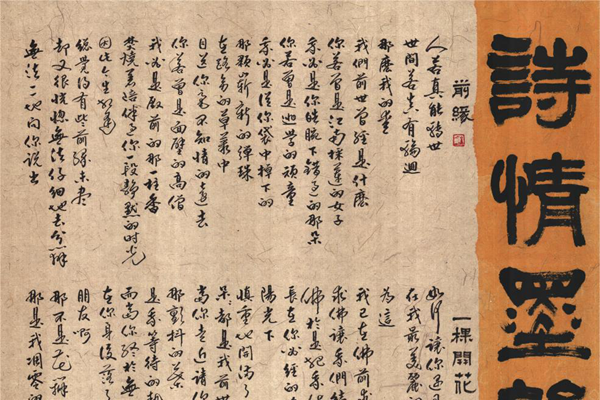 詩情墨
前緣
人若真能轉世
世間若真有輪迴
那麼我的愛
我們前世曾經是什麼
你若曾是江南採蓮的女子
我必是你皓腕下錯過的那朵
你若曾是逃學的頑童
我必是從你袋中掉下的
那顆嶄新的彈珠
在路旁的草叢中
目送你毫不知情的遠去
你若曾是面壁的高僧
我必是殿前的那一柱香
焚燒著陪伴了你一段靜默的時光
因此今生相逢
總覺得有些前緣未盡
卻又很恍惚無法仔細地去分辨
無法一一地向你說出
一棵開花
如何讓你遇
在我最美麗
為這
我已在佛前
求佛讓我們結
佛於是把我
長在你必經的
陽光下
慎重地開滿了
朵朵都是我前世
當你走近請你
那顫抖的葉
是我等待的熱
而當你終於無
在你身後落了
朋友啊
那不是花瓣
那是我凋零的